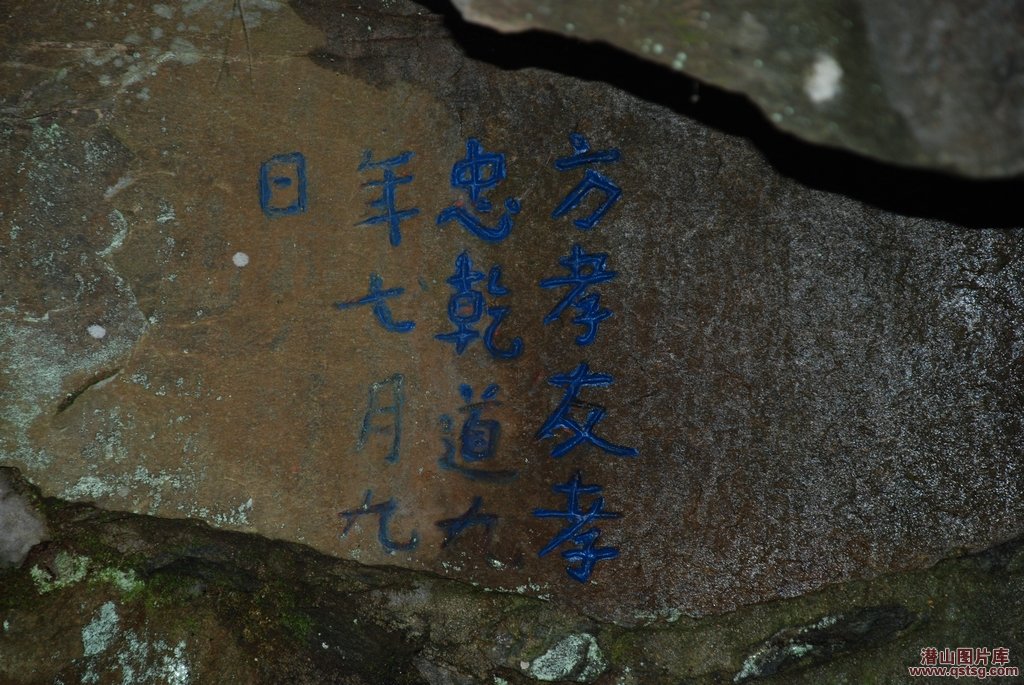 方孝友孝
忠乾道九
年七月九
日
潜山图片库
www.qstsg.com